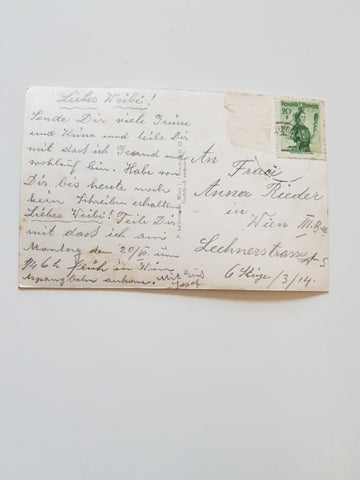 Liebes Weibi!
Sende Dir viele Grüsse
und Küsse und teile Dir
mit dass ich Gesund und
wohlauf bin. Habe von
Dir bis heute noch
kein Schreiben erhalten
Liebes Weibi! Teile Dir
mit dass ich am
Montag den 20/VI. um
1/4 6 h früh in Wien
Aspangbahn ankomme. Mit
Josef
Republik Österreich
20
An
Frau
Anna Rieder
in
Wien III.
Lechnerstrasse
6 Stiege /3/14.